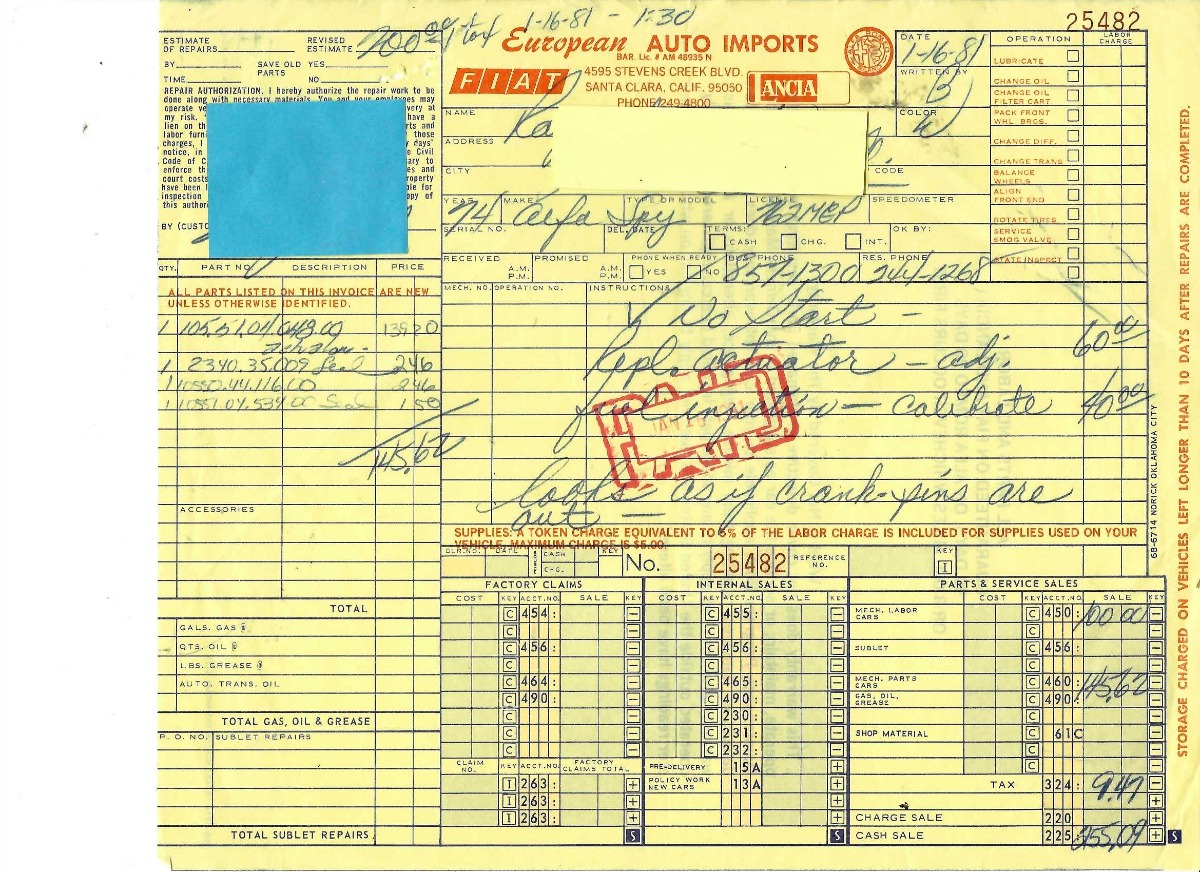 25482
200.00 + tax 1-16-81 - 1:30
ESTIMATE OF REPAIRS
REVISED ESTIMATE
BY
SAVE OLD PARTS YES
TIME
NO
European AUTO IMPORTS
BAR. Lic. # AM 48935 N
FIAT
4595 STEVENS CREEK BLVD.
SANTA CLARA, CALIF. 95050
PHONE 249-4800
LANCIA
DATE 1-16-81
WRITTEN BY B
COLOR
REPAIR AUTHORIZATION. I hereby authorize the repair work to be
done along with necessary materials. You and your employees may
operate
very at
my risk.
have a
lien on th
rts and
labor furn
those
charges, I
days'
notice, in
Civil
Code of C
ary to
enforce th
es and
court costs
roperty
have been
ble for
inspection
opy of
this author
BY (CUSTO
NAME
ADDRESS
CITY
CODE
YEAR 74 MAKE Alfa TYPE OR MODEL Spy LICENSE 762MEP SPEEDOMETER
SERIAL NO. DEL. DATE TERMS: CASH CHG. INT. OK BY:
RECEIVED A.M. P.M. PROMISED A.M. P.M. PHONE WHEN READY YES NO BUS. PHONE 857-1300 RES. PHONE 244-1268
OPERATION LABOR CHARGE
LUBRICATE
CHANGE OIL
CHANGE OIL FILTER CART
PACK FRONT WHL. BRGS.
CHANGE DIFF.
CHANGE TRANS
BALANCE WHEELS
ALIGN FRONT END
ROTATE TIRES
SERVICE SMOG VALVE
STATE INSPECT
QTY. PART NO. DESCRIPTION PRICE
ALL PARTS LISTED ON THIS INVOICE ARE NEW
UNLESS OTHERWISE IDENTIFIED.
1 105.51.01.048.00 139 20
1 2340.35.009 Seal 2 46
1 10550.44.116.00 2 46
1 10551.04.539.00 Seal 1 50
145.62
ACCESSORIES
TOTAL
GALS. GAS @
QTS. OIL @
LBS. GREASE @
AUTO. TRANS. OIL
TOTAL GAS, OIL & GREASE
P. O. NO. SUBLET REPAIRS
TOTAL SUBLET REPAIRS
MECH. NO. OPERATION NO. INSTRUCTIONS
No Start -
Repl. actuator - adj. 60.00
fuel injection - calibrate 40.00
PAID
looks as if crank-pins are
out -
SUPPLIES: A TOKEN CHARGE EQUIVALENT TO 6% OF THE LABOR CHARGE IS INCLUDED FOR SUPPLIES USED ON YOUR
VEHICLE. MAXIMUM CHARGE IS $6.00.
DLR. NO. DATE CASH CHG. KEY No. 25482 REFERENCE NO. KEY I
FACTORY CLAIMS INTERNAL SALES PARTS & SERVICE SALES
COST KEY ACCT. NO. SALE KEY COST KEY ACCT. NO. SALE KEY COST KEY ACCT. NO. SALE KEY
C 454: − C 455: − MECH. LABOR CARS C 450: 100 00 −
C − C − C −
C 456: − C 456: − SUBLET C 456: −
C − C − C −
C 464: − C 465: − MECH. PARTS CARS C 460: 145.62 −
C 490: − C 490: − GAS, OIL, GREASE C 490: −
C − C 230: − C −
C − C 231: − SHOP MATERIAL C 61C −
C − C 232: − C −
CLAIM NO. KEY ACCT. NO. FACTORY CLAIMS TOTAL PRE-DELIVERY 15A + C −
I 263: + POLICY WORK NEW CARS 13A + TAX 324: 9.47 +
I 263: + + +
I 263: + + CHARGE SALE 220 +
S S CASH SALE 225: 255.09 + S
68-6714 NORICK OKLAHOMA CITY
STORAGE CHARGED ON VEHICLES LEFT LONGER THAN 10 DAYS AFTER REPAIRS ARE COMPLETED.